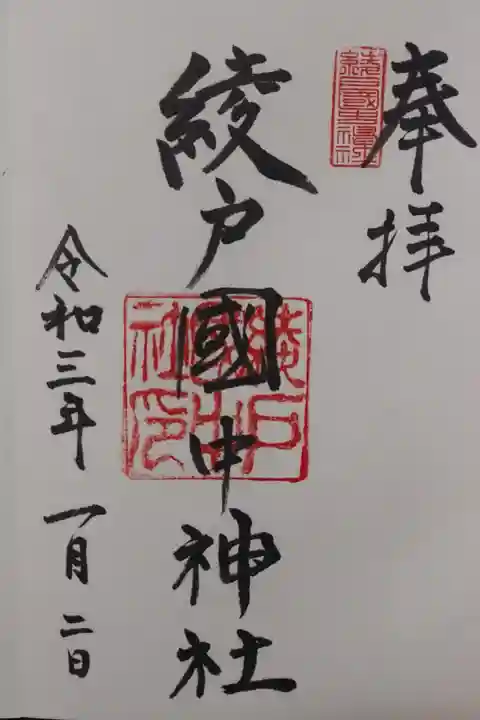 奉拝
綾戸國中神社
令和三年一月二日
綾戸國中神社印